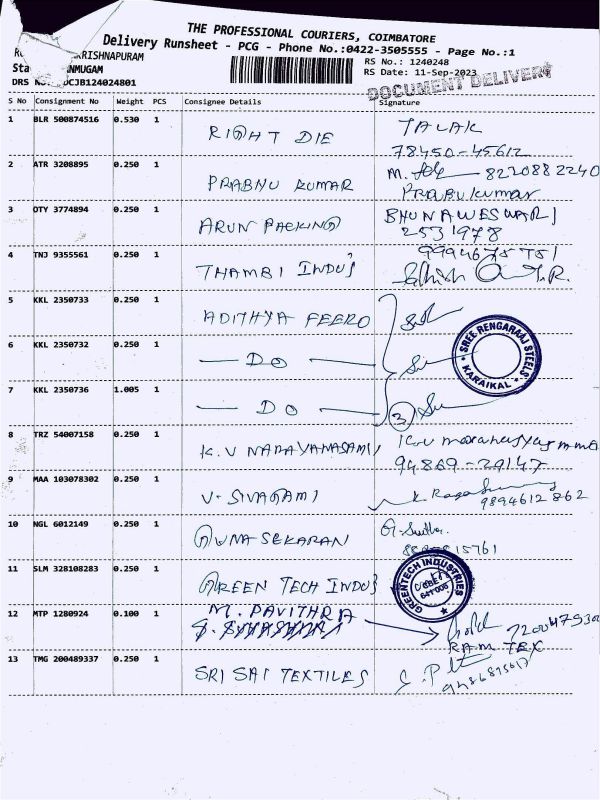 THE PROFESSIONAL COURIERS, COIMBATORE
Delivery Runsheet - PCG - Phone No.:0422-3505555 - Page No.:1
KRISHNAPURAM
RS No.: 1240248
Sta NMUGAM
RS Date: 11-Sep-2023
DRS No. DCJB124024801
DOCUMENT DELIVERY
S No Consignment No Weight PCS Consignee Details Signature
1 BLR 500874516 0.530 1 RIGHT DIE TALAK
78450-45612
2 ATR 3208895 0.250 1 PRABHU KUMAR M. 8220882240
Prabukumar
3 OTY 3774894 0.250 1 ARUN PACKING BHUNAWESWARI
2531978
4 TNJ 9355561 0.250 1 THAMBI INDUS
5 KKL 2350733 0.250 1 ADITHYA FEERO
6 KKL 2350732 0.250 1 — DO —
SREE RENGARAAJ STEELS
KARAIKAL
7 KKL 2350736 1.005 1 — DO — 3
8 TRZ 54007158 0.250 1 K.V NARAYANASAMI
94869-29147
9 MAA 103078302 0.250 1 V. SIVAGAMI K.
9894612862
10 NGL 6012149 0.250 1 GUNASEKARAN
11 SLM 328108283 0.250 1 GREEN TECH INDUS
GREENTECH INDUSTRIES
12 MTP 1280924 0.100 1 M. PAVITHRA
RAM TEX
13 TMG 200489337 0.250 1 SRI SAI TEXTILES